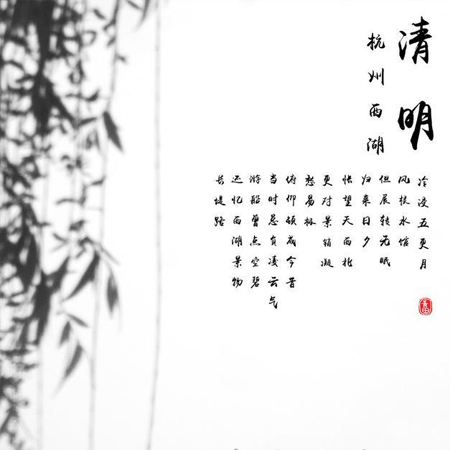 清明
杭州西湖
长堤路
还忆西湖景物
游船曾点空碧
当时总负凌云气
俯仰顿成今昔
愁易极
更对景销凝
怅望天西北
归来日夕
但展转无眠
风枝水馆
冷浸五更月